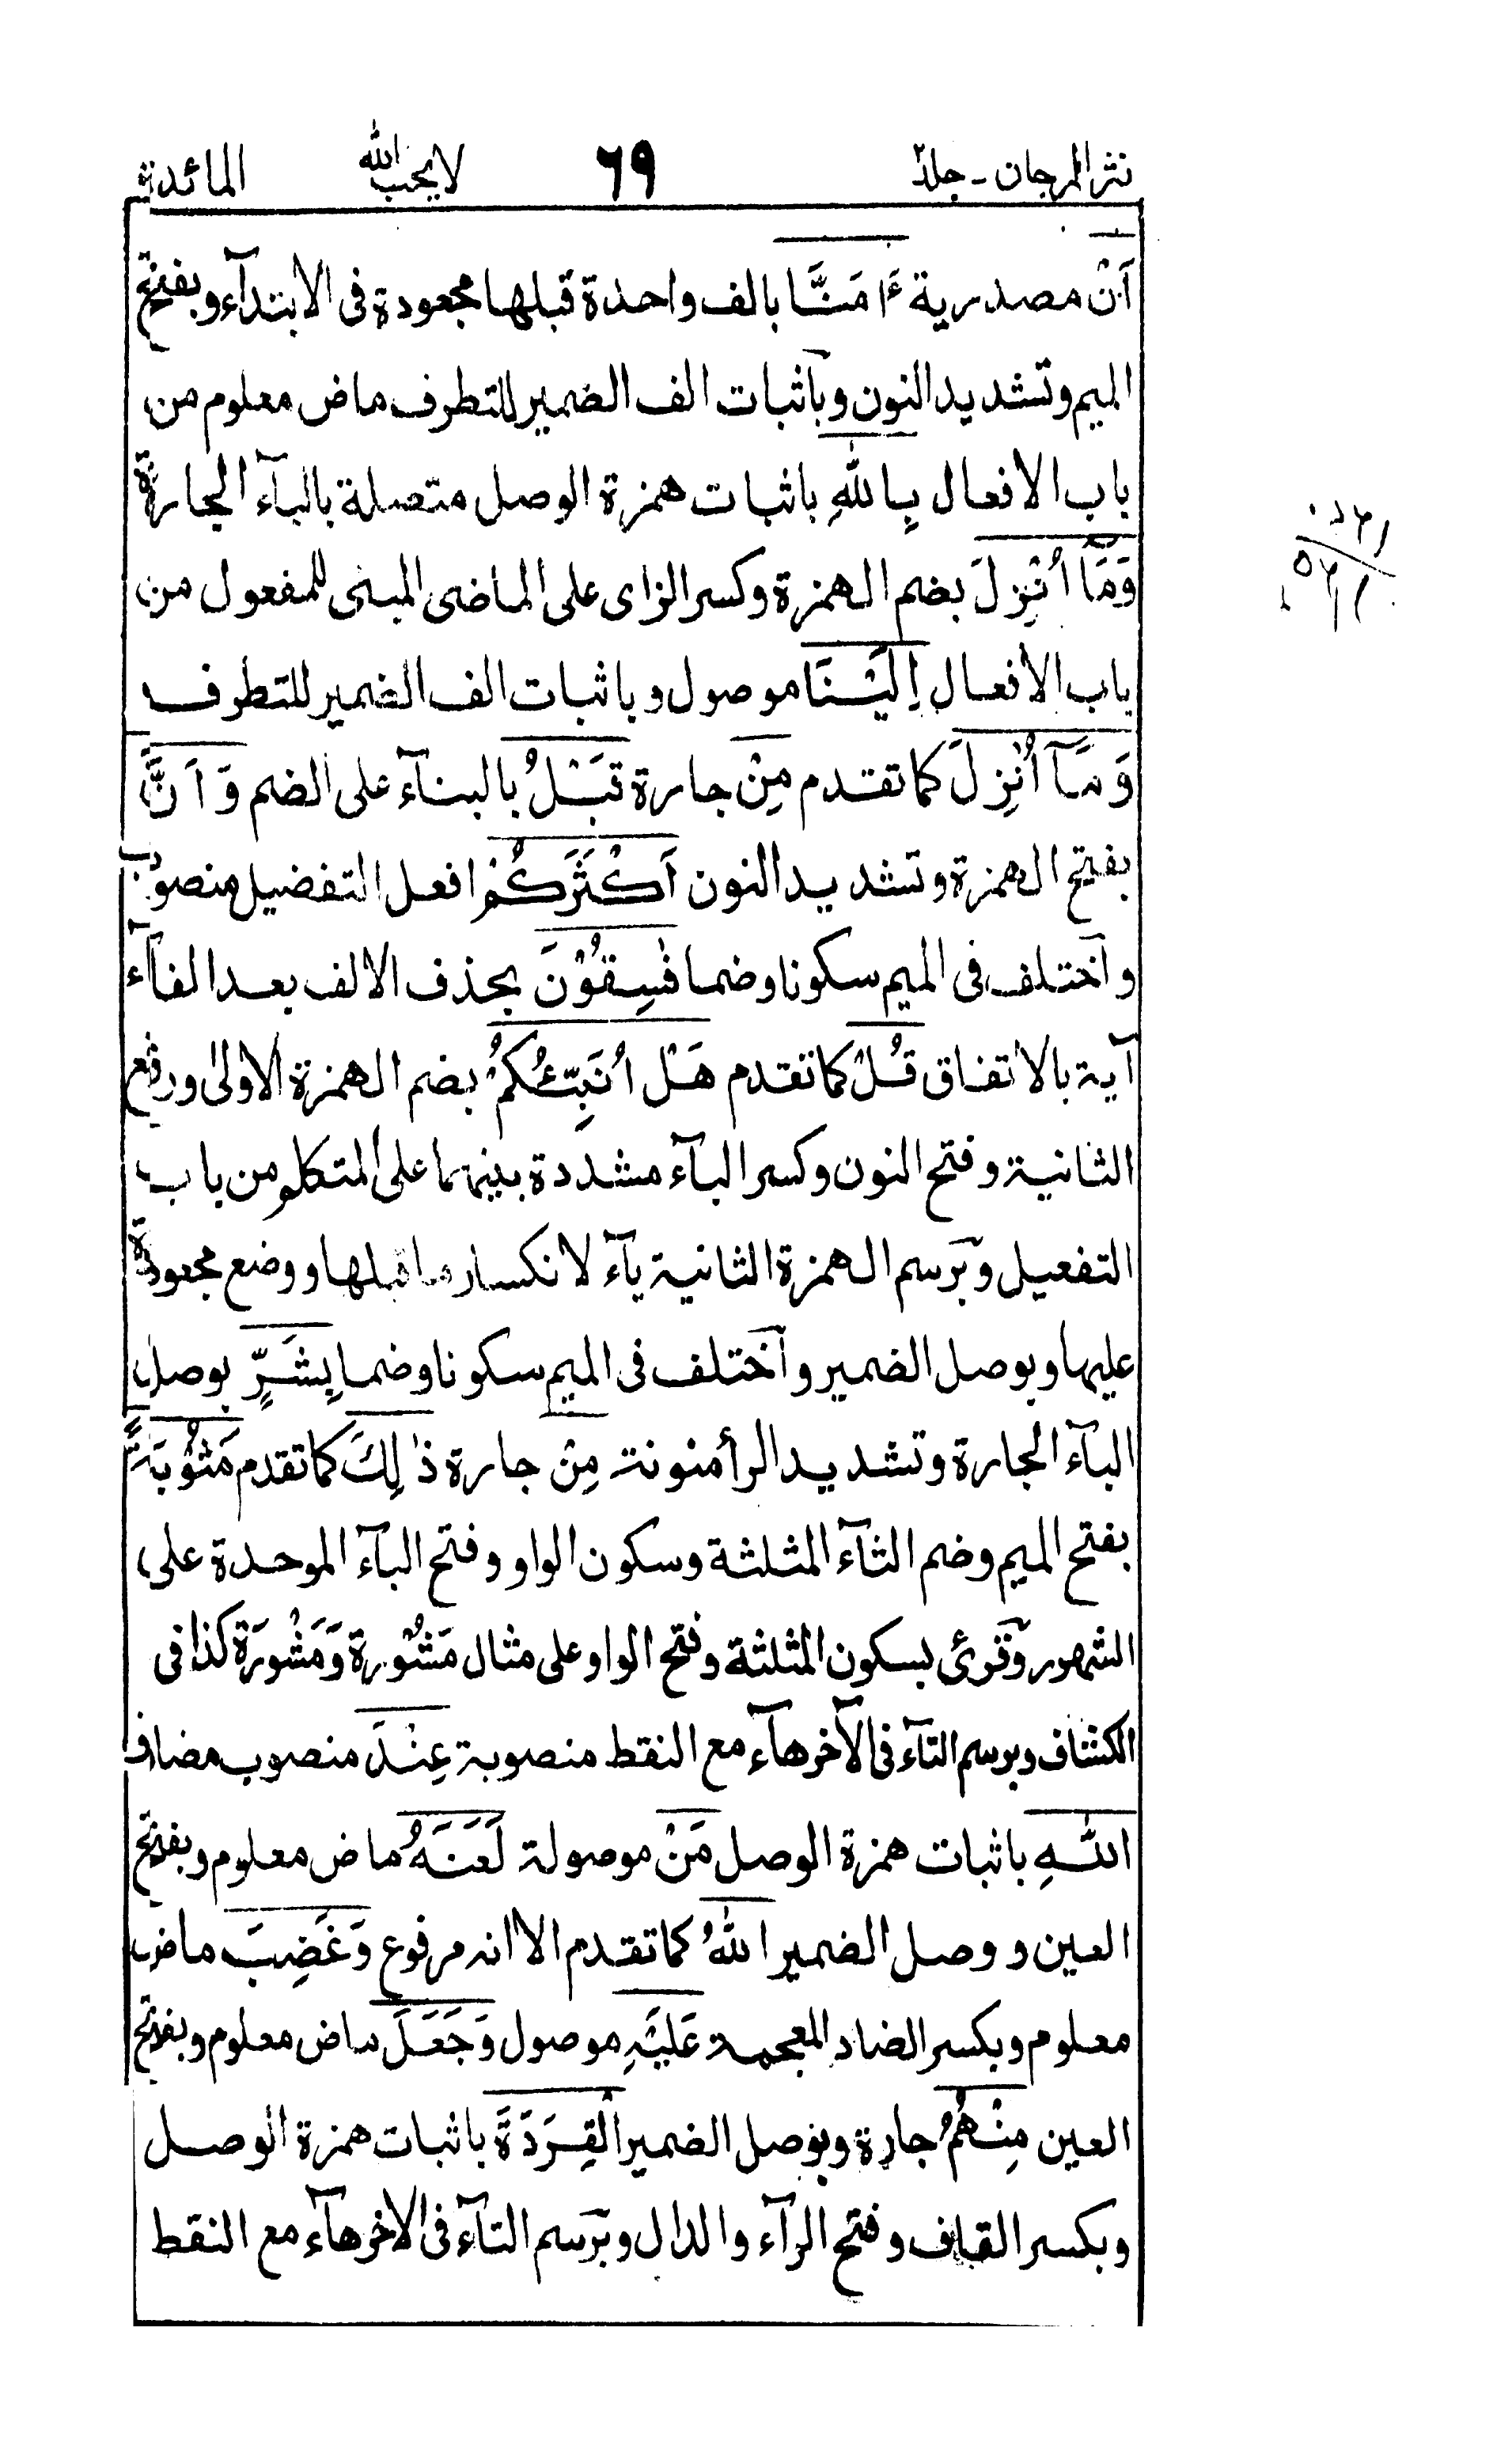 نثر المرجان - جلد ٢ ٦٩ لا يحب الله المائدة
اَنْ مصدرية ءَامَنَّا بالف واحدة قبلها مجعودة فى الابتدآء وبفتح
الميم وتشديد النون وبآثبات الف الضمير للتطرف ماض معلوم من
باب الافعال بِاللهِ باثبات همزة الوصل متصلة بالبآء الجارة
وَمَآ اُنْزِلَ بضم الهمزة وكسر الزاى على الماضى المبنى للمفعول من
باب الافعال اِلَيْنَا موصول وباثبات الف الضمير للتطرف
وَمَآ اُنْزِلَ كما تقدم مِنْ جارة قَبْلُ بالبنآء على الضم وَاَنَّ
بفتح الهمزة وتشديد النون اَكْثَرَكُمْ افعل التفضيل منصوب
وآختلف فى الميم سكونا وضما فٰسِقُوْنَ بحذف الالف بعد الفآء
آية بالاتفاق قُلْ كما تقدم هَلْ اُنَبِّئُكُمْ بضم الهمزة الاولىٰ ورفع
الثانية وفتح النون وكسر البآء مشددة بينهما على المتكلم من باب
التفعيل وبرسم الهمزة الثانية يآء لانكسار ما قبلها ووضع مجعودة
عليها وبوصل الضمير وآختلف فى الميم سكونا وضما بِشَرٍّ بوصل
البآء الجارة وتشديد الرأ منونة مِنْ جارة ذٰلِكَ كما تقدم مَثُوْبَةً
بفتح الميم وضم الثآء المثلثة وسكون الواو وفتح البآء الموحدة على
المشهور وقرئ بسكون المثلثة وفتح الواو على مثال مَشُوْرة وَمَشْوَرَة كذا فى
الكشاف وبرسم التآء فى الآخر هآء مع النقط منصوبة عِنْدَ منصوب مضاف
اللهِ باثبات همزة الوصل مَنْ موصولة لَعَنَهُ ماض معلوم وبفتح
العين ووصل الضمير اللهُ كما تقدم الا انه مرفوع وَغَضِبَ ماض
معلوم وبكسر الضاد المعجمة عَلَيْهِ موصول وَجَعَلَ ماض معلوم وبفتح
العين مِنْهُمُ جارة وبوصل الضمير الْقِرَدَةَ باثبات همزة الوصل
وبكسر القاف وفتح الرآء والدال وبرسم التآء فى الاخر هآء مع النقط